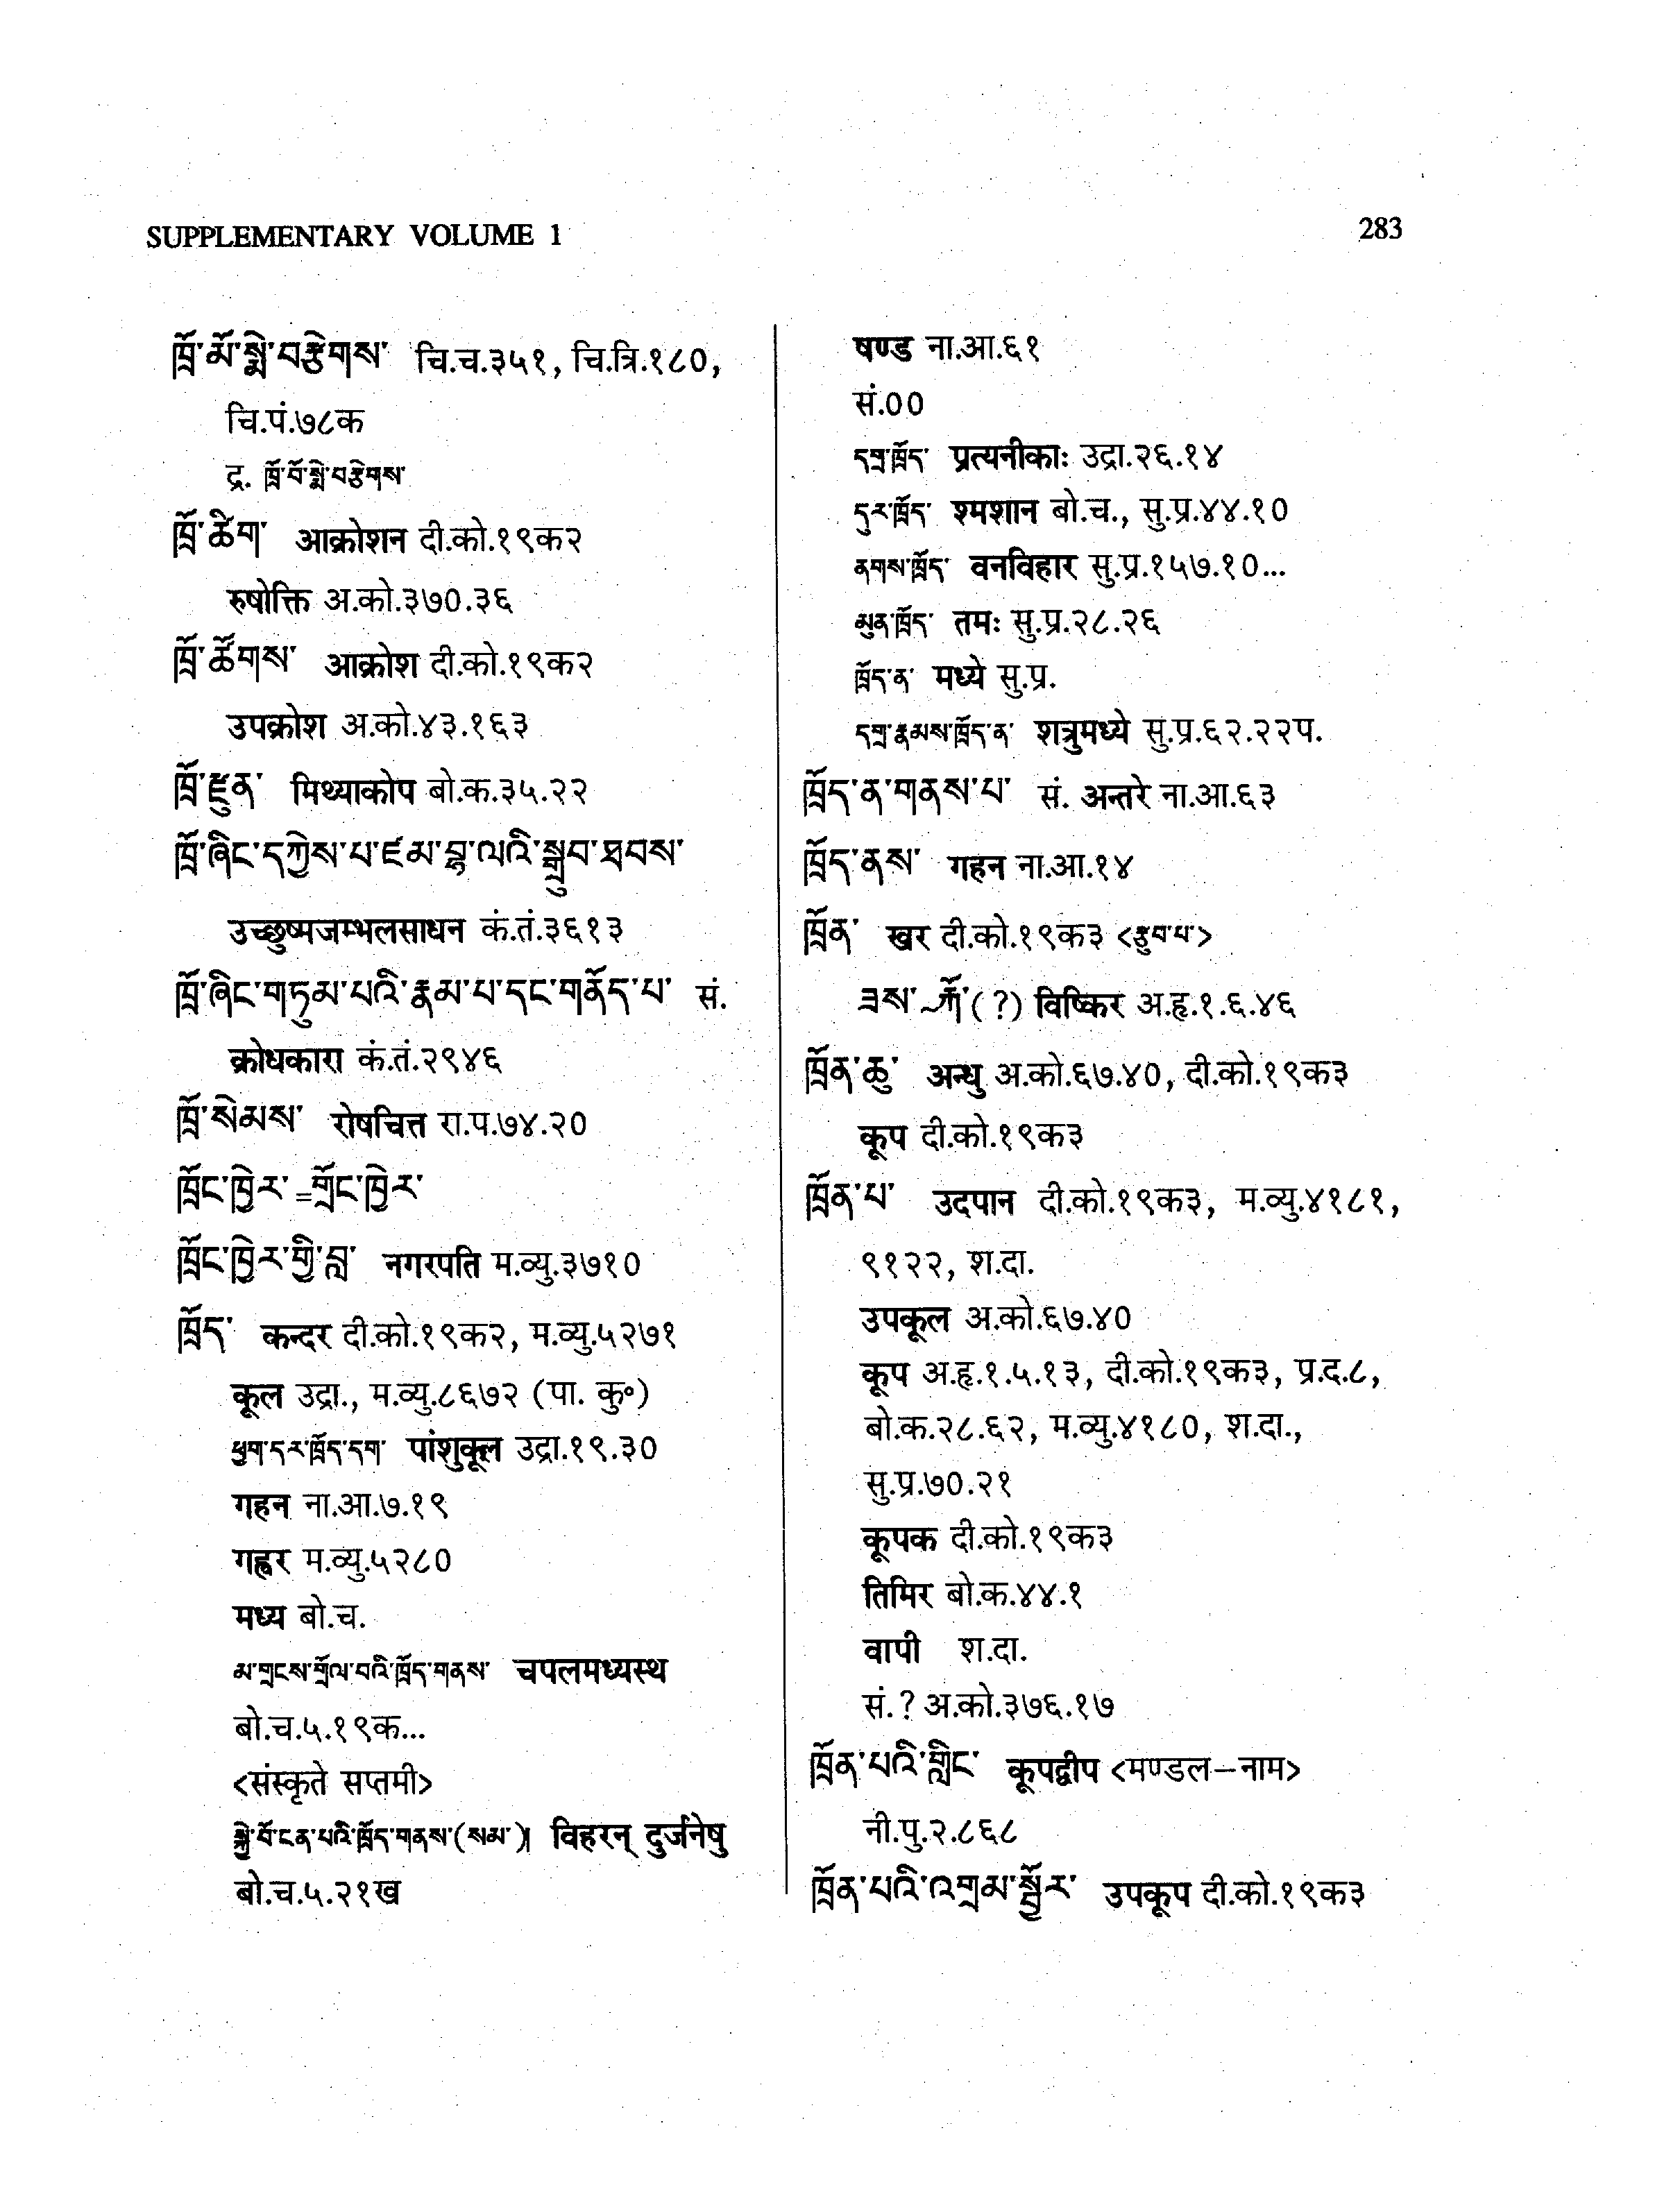 SUPPLEMENTARY VOLUME 1
283
ཁྲོ་མོ་སྨེ་བརྩེགས་ चि.च.३५१, चि.त्रि.१८०,
चि.पं.७८क
द्र. ཁྲོ་བོ་སྨེ་བརྩེགས་
ཁྲོ་ཚིག་ आक्रोशन दी.को.१९क२
रुषोक्ति अ.को.३७०.३६
ཁྲོ་ཚོགས་ आक्रोश दी.को.१९क२
उपक्रोश अ.को.४३.१६३
ཁྲོ་ཛུན་ मिथ्याकोप बो.क.३५.२२
ཁྲོ་ཞིང་དཀྱེས་པ་ཛམ་བྷ་ལའི་སྒྲུབ་ཐབས་
उच्छुष्मजम्भलसाधन कं.तं.३६१३
ཁྲོ་ཞིང་གཏུམ་པའི་རྣམ་པ་དང་གནོད་པ་ सं.
क्रोधकारा कं.तं.२९४६
ཁྲོ་སེམས་ रोषचित्त रा.प.७४.२०
ཁྲོང་ཁྱེར་=གྲོང་ཁྱེར་
ཁྲོང་ཁྱེར་གྱི་བླ་ नगरपति म.व्यु.३७१०
ཁྲོད་ कन्दर दी.को.१९क२, म.व्यु.५२७१
कूल उद्रा., म.व्यु.८६७२ (पा. कु॰)
ཕྱག་དར་ཁྲོད་དག་ पांशुकूल उद्रा.१९.३०
गहन ना.आ.७.१९
गह्वर म.व्यु.५२८०
मध्य बो.च.
མ་གྲངས་གྲོལ་བའི་ཁྲོད་གནས་ चपलमध्यस्थ
बो.च.५.१९क...
<संस्कृते सप्तमी>
སྐྱེ་བོ་ངན་པའི་ཁྲོད་གནས་(སམ་)། विहरन् दुर्जनेषु
बो.च.५.२१ख
षण्ड ना.आ.६१
सं.००
དགྲ་ཁྲོད་ प्रत्यनीकाः उद्रा.२६.१४
དུར་ཁྲོད་ श्मशान बो.च., सु.प्र.४४.१०
ནགས་ཁྲོད་ वनविहार सु.प्र.१५७.१०...
མུན་ཁྲོད་ तमः सु.प्र.२८.२६
ཁྲོད་ན་ मध्ये सु.प्र.
དགྲ་རྣམས་ཁྲོད་ན་ शत्रुमध्ये सु.प्र.६२.२२प.
ཁྲོད་ན་གནས་པ་ सं. अन्तरे ना.आ.६३
ཁྲོད་ནས་ गहन ना.आ.१४
ཁྲོན་ खर दी.को.१९क३ <རྩུབ་པ་>
ཟས་ (?) विष्किर अ.हृ.१.६.४६
ཁྲོན་ཆུ་ अन्धु अ.को.६७.४०, दी.को.१९क३
कूप दी.को.१९क३
ཁྲོན་པ་ उदपान दी.को.१९क३, म.व्यु.४१८१,
९१२२, श.दा.
उपकूल अ.को.६७.४०
कूप अ.हृ.१.५.१३, दी.को.१९क३, प्र.द.८,
बो.क.२८.६२, म.व्यु.४१८०, श.दा.,
सु.प्र.७०.२१
कूपक दी.को.१९क३
तिमिर बो.क.४४.१
वापी श.दा.
सं.? अ.को.३७६.१७
ཁྲོན་པའི་གླིང་ कूपद्वीप <मण्डल–नाम>
नी.पु.२.८६८
ཁྲོན་པའི་འགྲམ་སྦྱོར་ उपकूप दी.को.१९क३